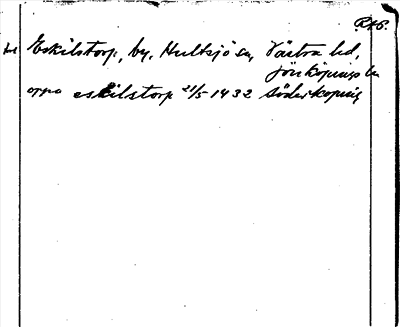 RAP.
Eskilstorp, by, Hultsjö sn, Västra hd,
Jönköpings ln
oppa eskilstorp 21/5 1432 Söderköping